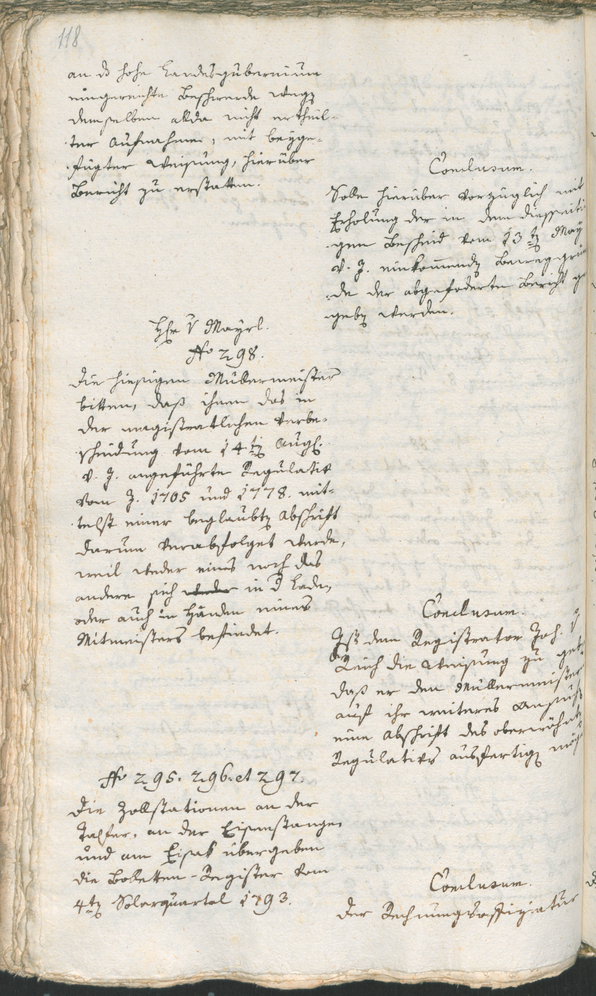 118
an d hohe Landesgubernium
eingereichte Beschwerde wegen
demselben alda nicht ertheil-
ter Aufnahme, mit beyge-
fügter Weisung, hierüber
Bericht zu erstatten.
Conclusum.
Solle hierüber vorzüglich mit
Erholung der in dem
gen Bescheid vom 13ten May
v. J. einkommenden Beweggrün
de der abgeforderte Bericht
geben werden.
Hr v Mayrl.
No 298.
Die hiesigen Müllermeister
bitten, daß ihnen das in
der magistratlichen Verbe-
scheidung vom 14ten Augst
v. J. angeführte Regulativ
vom J. 1705 und 1778. mit-
telst einer beglaubten Abschrift
darum verabfolget werde,
weil weder eines noch das
andere sich in d Lade,
oder auch in Handen eines
Mitmeisters befindet.
Conclusum.
Ist dem Registrator Joh. v
die Weisung zu geben
daß er den Müllermeister
auf ihr weiteres Ansuch
eine Abschrift des oberwöhnt
Regulativs ausfertigen möge
No 295. 296. et 297.
Die Zollstationen an der
Talfer, an der Eisenstangen
und am Eisak übergeben
die Boletten-Register vom
4ten Solarquartal 1793.
Conclusum.
Der Rechnungsoffiziatur